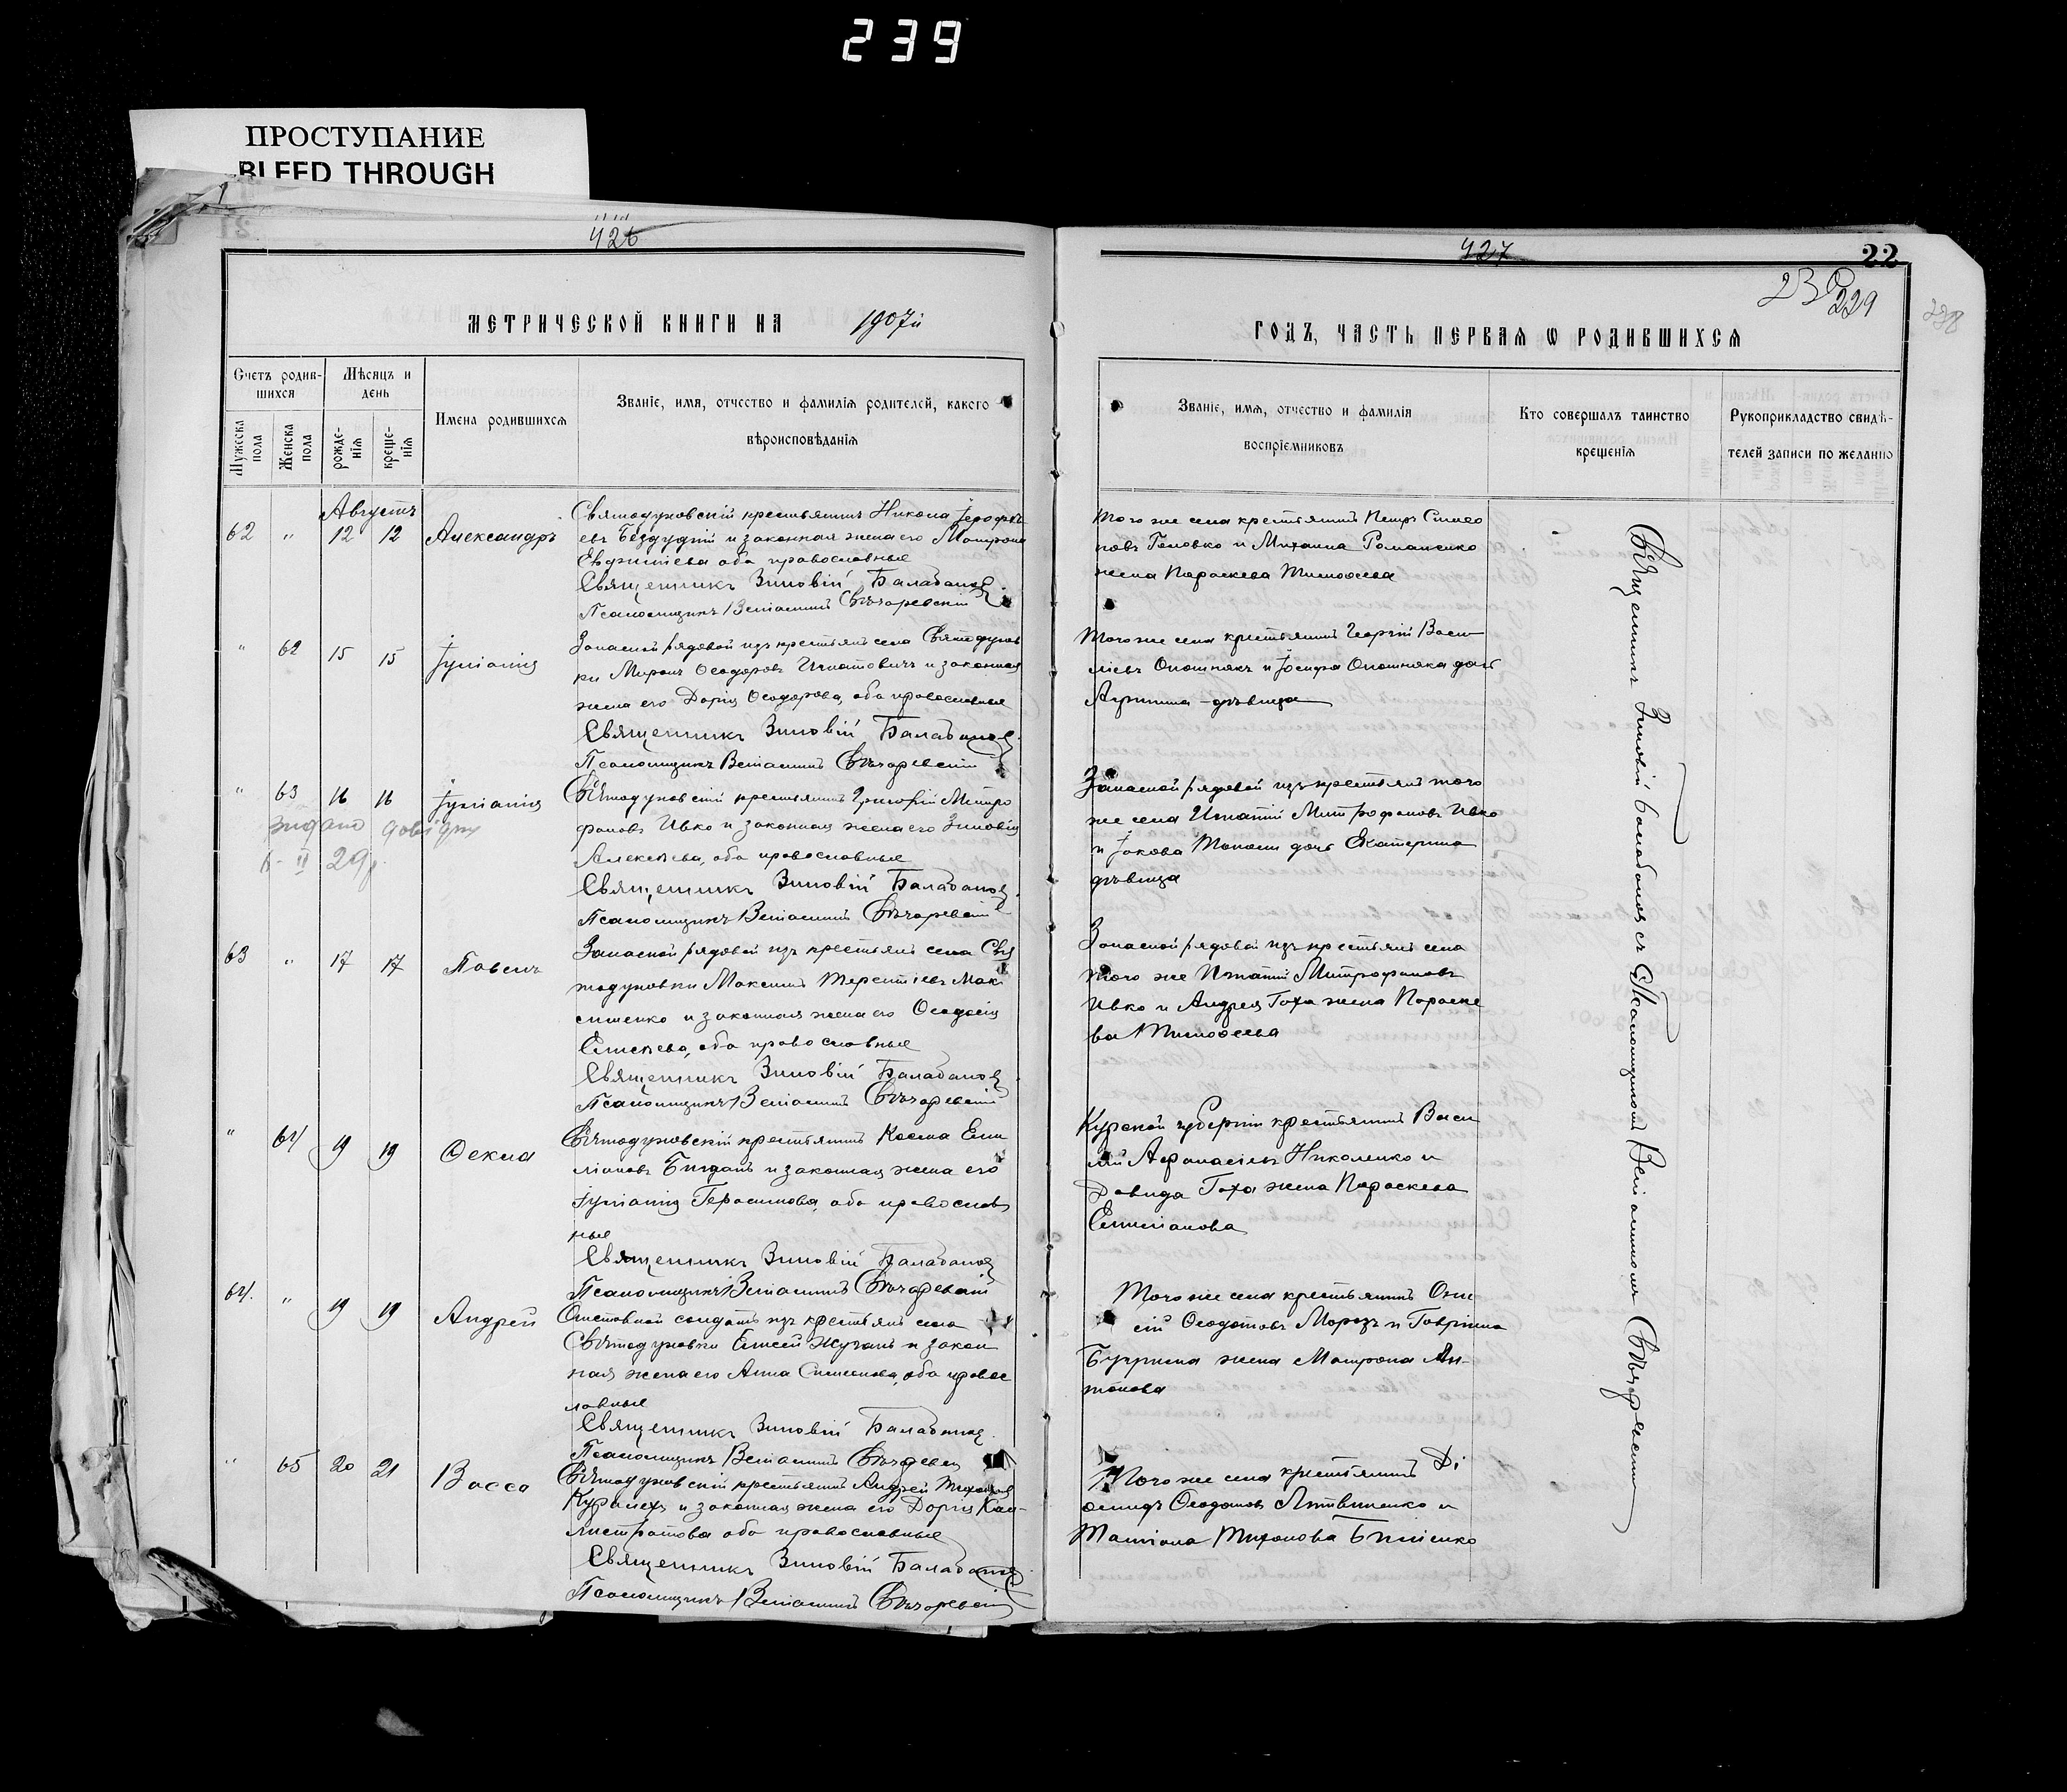 239
ПРОСТУПАНИЕ
BLEED THROUGH
426
МЕТРИЧЕСКОЙ КНИГИ НА 1907й
Счетъ родив-
шихся
Мѣсяцъ и
день
Имена родившихся
Званіе, имя, отчество и фамилія родителей, какого
вѣроисповѣданія
Мужеска
пола
Женска
пола
рожде-
нія
креще-
нія
Августъ
62 " 12 12 Александръ
Святодуховскій крестьянинъ Никола Іероѳѣ
евъ Бездудній и законная жена его Матрона
оба православные
Священникъ Зиновій Балабановъ
Псаломщикъ Веніаминъ
" 62 15 15 Іуліанія
Запасной рядовой изъ крестьянъ села Святодухов
ки Миронъ Ѳеодоровъ Игнатовичъ и законная
жена его Дарія Ѳеодорова, оба православные
Священникъ Зиновій Балабановъ
Псаломщикъ Веніаминъ
" 63 16 16 Іуліанія
видано довідку
29р
Святодуховскій крестьянинъ Григорій Митро
фановъ Ивко и законная жена его Зиновія
Алексѣева, оба православные
Священникъ Зиновій Балабановъ
Псаломщикъ Веніаминъ
63 " 17 17 Павелъ
Запасной рядовой изъ крестьянъ села Свя
тодуховки Максимъ Терентіевъ Мак
сименко и законная жена его Ѳеодосія
Елисѣева, оба православные
Священникъ Зиновій Балабановъ
Псаломщикъ Веніаминъ
" 64 19 19 Ѳекла
Святодуховскій крестьянинъ Косма Еми
ліановъ и законная жена его
Іуліанія Герасимова, оба православ
ные
Священникъ Зиновій Балабановъ
Псаломщикъ Веніаминъ
64. " 19 19 Андрей
Отставной солдатъ изъ крестьянъ села
Святодуховки Елисей Жуганъ и закон
ная жена его Анна Симеонова, оба правос
лавные
Священникъ Зиновій Балабановъ
Псаломщикъ Веніаминъ
" 65 20 21 Васса
Святодуховскій крестьянинъ Андрей Тихоновъ
и законная жена его Дарія Кал-
листратова оба православные
Священникъ Зиновій Балабановъ
Псаломщикъ Веніаминъ
427
22
230
229
238
ГОДЪ, ЧАСТЬ ПЕРВАЯ Ѡ РОДИВШИХСЯ
Званіе, имя, отчество и фамилія
воспріемниковъ
Кто совершалъ таинство
крещенія
Рукоприкладство свидѣ-
телей записи по желанію
Того же села крестьянинъ Петръ
Головко и Михаила Романенко
жена Параскева Тимоѳеева
Того же села крестьянинъ Георгій Васи
ліевъ Опошнякъ и Іосифа Опошняка дочь
Агрипина - дѣвица
Запасной рядовой изъ крестьянъ того
же села Игнатій Митрофановъ Ивко
и Іакова дочь Екатерина
дѣвица
Запасной рядовой изъ крестьянъ села
того же Игнатій Митрофановъ
Ивко и Андрея Гоха жена Параске
ва Тимоѳеева
Курской губерніи крестьянинъ Васи
лій Аѳанасіевъ Николенко и
Давида Гоха жена Параскева
Емиліанова
Того же села крестьянинъ Они
сій Ѳеодотовъ Морозъ и Гавріила
жена Матрона Ан-
тонова
Того же села крестьянинъ Ді
омидъ Ѳеодотовъ Литвиненко и
Татіана Тихонова
Священникъ Зиновій Балабановъ съ Псаломщикомъ Веніаминомъ